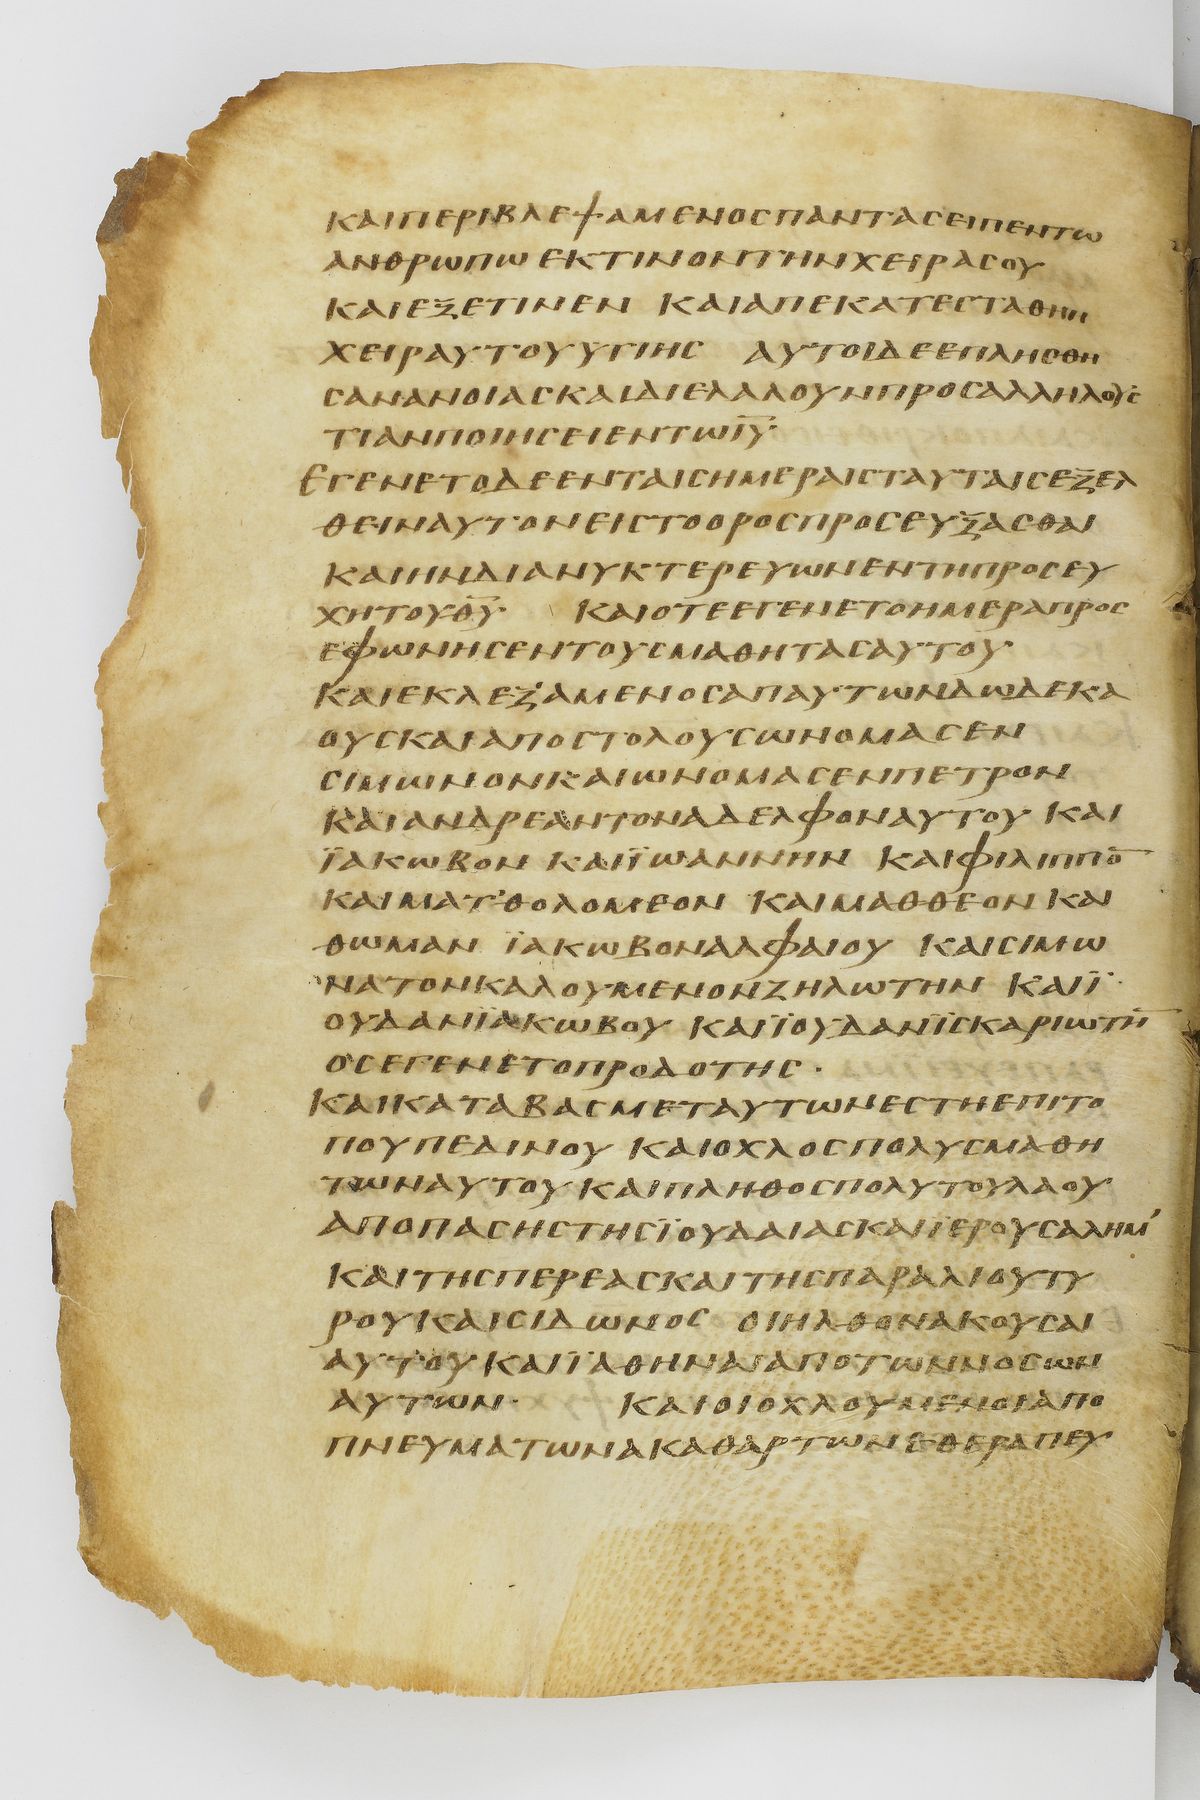 ΚΑΙΠΕΡΙΒΛΕΨΑΜΕΝΟΣΠΑΝΤΑΣΕΙΠΕΝΤΩ
ΑΝΘΡΩΠΩ ΕΚΤΙΝΟΝΤΗΝΧΕΙΡΑΣΟΥ
ΚΑΙΕΞΕΤΙΝΕΝ ΚΑΙΑΠΕΚΑΤΕΣΤΑΘΗΗ
ΧΕΙΡΑΥΤΟΥΥΓΙΗΣ ΑΥΤΟΙΔΕΕΠΛΗΣΘΗ
ΣΑΝΑΝΟΙΑΣΚΑΙΔΙΕΛΑΛΟΥΝΠΡΟΣΑΛΛΗΛΟΥΣ
ΤΙΑΝΠΟΙΗΣΕΙΕΝΤΩΙ̅Υ̅·
ΕΓΕΝΕΤΟΔΕΕΝΤΑΙΣΗΜΕΡΑΙΣΤΑΥΤΑΙΣΕΞΕΛ
ΘΕΙΝΑΥΤΟΝΕΙΣΤΟΟΡΟΣΠΡΟΣΕΥΞΑΣΘΑΙ
ΚΑΙΗΝΔΙΑΝΥΚΤΕΡΕΥΩΝΕΝΤΗΠΡΟΣΕΥ
ΧΗΤΟΥΘ̅Υ̅· ΚΑΙΟΤΕΕΓΕΝΕΤΟΗΜΕΡΑΠΡΟΣ
ΕΦΩΝΗΣΕΝΤΟΥΣΜΑΘΗΤΑΣΑΥΤΟΥ
ΚΑΙΕΚΛΕΞΑΜΕΝΟΣΑΠΑΥΤΩΝΔΩΔΕΚΑ
ΟΥΣΚΑΙΑΠΟΣΤΟΛΟΥΣΩΝΟΜΑΣΕΝ
ΣΙΜΩΝΟΝΚΑΙΩΝΟΜΑΣΕΝΠΕΤΡΟΝ
ΚΑΙΑΝΔΡΕΑΝΤΟΝΑΔΕΛΦΟΝΑΥΤΟΥ ΚΑΙ
ΪΑΚΩΒΟΝ ΚΑΙΪΩΑΝΝΗΝ ΚΑΙΦΙΛΙΠΠΟ̅
ΚΑΙΜΑΤ'ΘΟΛΟΜΕΟΝ ΚΑΙΜΑΘΘΕΟΝ ΚΑΙ
ΘΩΜΑΝ ΪΑΚΩΒΟΝΑΛΦΑΙΟΥ ΚΑΙΣΙΜΩ
ΝΑΤΟΝΚΑΛΟΥΜΕΝΟΝΖΗΛΩΤΗΝ ΚΑΙΪ
ΟΥΔΑΝΪΑΚΩΒΟΥ ΚΑΙΪΟΥΔΑΝΪΣΚΑΡΙΩΤΗ̅
ΟΣΕΓΕΝΕΤΟΠΡΟΔΟΤΗΣ·
ΚΑΙΚΑΤΑΒΑΣΜΕΤΑΥΤΩΝΕΣΤΗΕΠΙΤΟ
ΠΟΥΠΕΔΙΝΟΥ ΚΑΙΟΧΛΟΣΠΟΛΥΣΜΑΘΗ
ΤΩΝΑΥΤΟΥ ΚΑΙΠΛΗΘΟΣΠΟΛΥΤΟΥΛΑΟΥ
ΑΠΟΠΑΣΗΣΤΗΣΪΟΥΔΑΙΑΣΚΑΙΪΕΡΟΥΣΑΛΗΜ'
ΚΑΙΤΗΣΠΕΡΕΑΣΚΑΙΤΗΣΠΑΡΑΛΙΟΥΤΥ
ΡΟΥΚΑΙΣΙΔΩΝΟΣ ΟΙΗΛΘΟΝΑΚΟΥΣΑΙ
ΑΥΤΟΥ ΚΑΙΪΑΘΗΝΑΙΑΠΟΤΩΝΝΟΣΩΝ
ΑΥΤΩΝ· ΚΑΙΟΙΟΧΛΟΥΜΕΝΟΙΑΠΟ
ΠΝΕΥΜΑΤΩΝΑΚΑΘΑΡΤΩΝΕΘΕΡΑΠΕΥ